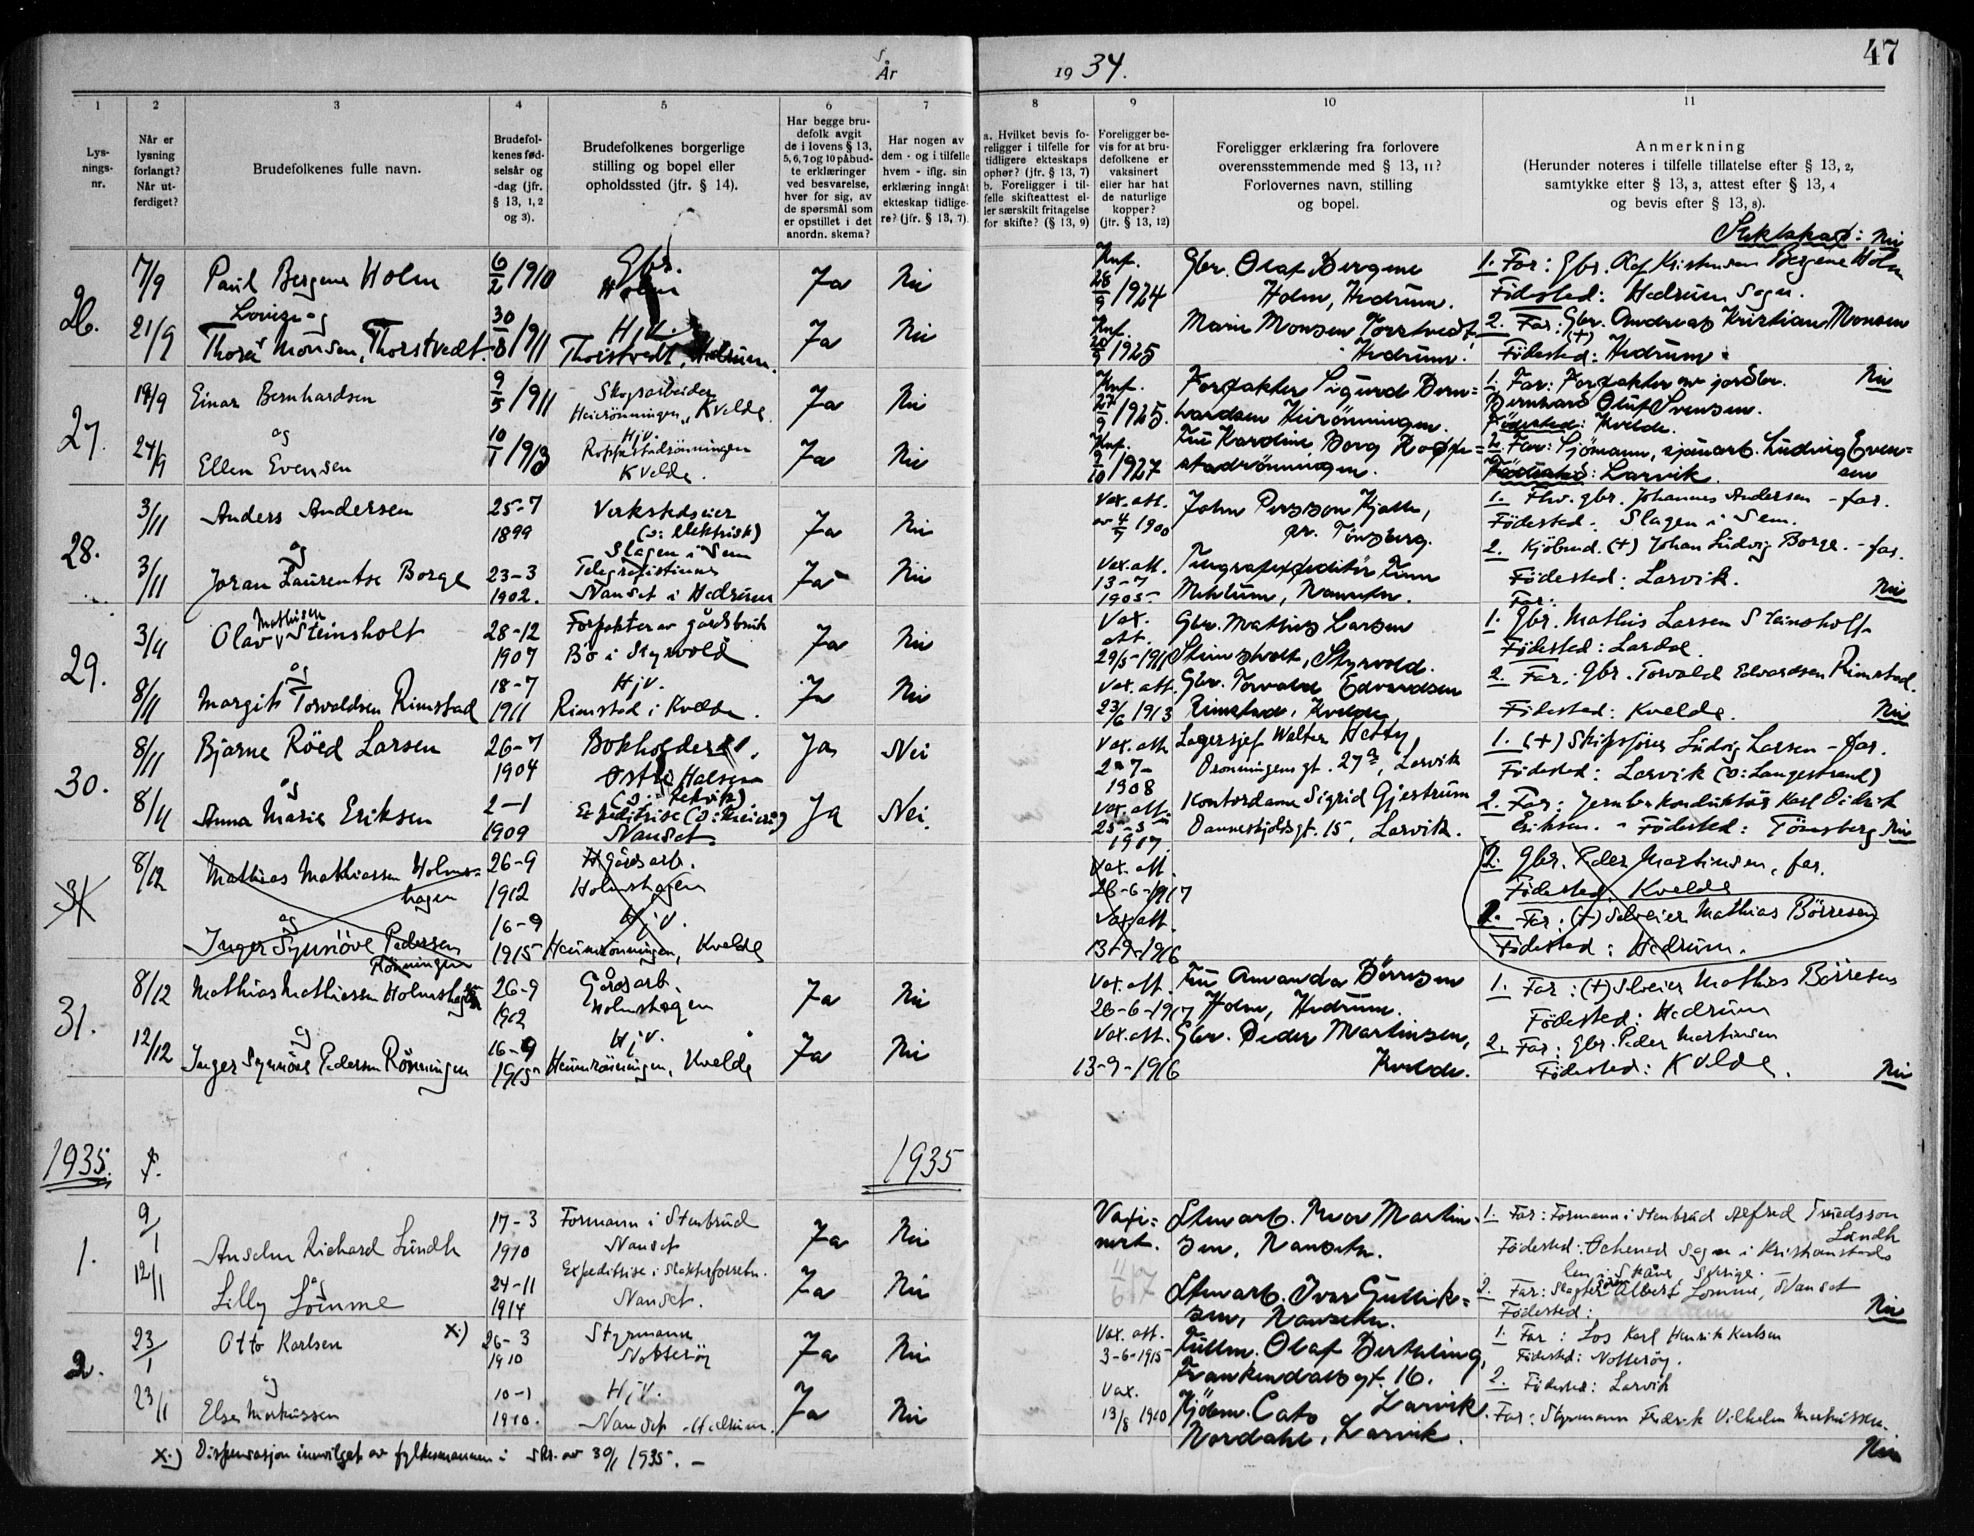 År
19 34.
47
1
2
3
4
5
6
7
8
9
10
11
Lys-
nings-
nr.
Når er
lysning
forlangt?
Når ut-
ferdiget?
Brudefolkenes fulle navn.
Brudefol-
kenes fød-
selsår og
-dag (jfr.
§ 13, 1, 2
og 3).
Brudefolkenes borgerlige
stilling og bopel eller
opholdssted (jfr. § 14).
Har begge bru-
defolk avgit
de i lovens § 13,
5, 6, 7 og 10 påbud-
te erklæringer
ved besvarelse,
hver for sig, av
de spørsmål som
er opstillet i det
anordn. skema?
Har nogen av
dem - og i tilfelle
hvem - iflg. sin
erklæring inngåt
ekteskap tidlige-
re? (jfr. § 13, 7).
a. Hvilket bevis fo-
religger i tilfelle for
tidligere ekteskaps
ophør? (jfr. § 13, 7)
b. Foreligger i til-
felle skifteattest el-
ler særskilt fritagelse
for skifte? (§ 13, 9)
Foreligger be-
vis for at bru-
defolkene er
vaksinert
eller har hat
de naturlige
kopper?
(jfr. § 13, 12)
Foreligger erklæring fra forlovere
overensstemmende med § 13, 11?
Forlovernes navn, stilling
og bopel.
Anmerkning
(Herunder noteres i tilfelle tillatelse efter § 13, 2,
samtykke efter § 13, 3, attest efter § 13, 4
og bevis efter § 13, 8).
Slektskap: Nei
26.
7/9
Paul Bergene Holm
6/2 1910
Gbr.
Holm
Ja
Nei
Knf.
28/9 1924
Gbr. Olaf Bergene
Holm, Hedrum.
1. Far: Gbr. Olaf Kristensen Bergene Holm
Fødested: Hedrum Sogn.
21/9
Lovise og
Thora Monsen, Thorstvedt
30/8 1911
Hjv.
Thorstvedt, Hedrum.
Ja
Nei
Knf.
1925
Marie Monsen Torstvedt
Hedrum.
2. Far: Gbr. Andreas Kristian Monsen
(+)
Fødested: Hedrum.
27.
19/9
Einar Bernhardsen
9/5 1911
Skogsarbeider
Heierönningen, Kvelde
Ja
Nei
Knf.
27/9 1925.
Forpakter Sigurd Bern=
hardsen Heirönningen.
1. Far: Forpakter av jordbr. Nei
Bernhard Oluf Svensen.
Fødested: Kvelde.
24/9
og
Ellen Evensen
10/1 1913
Hjv.
Roppestadrönningen
Kvelde.
Ja
Nei
Knf.
2/10 1927
Fru Karoline Borg Roppe=
stadrönningen.
2. Far: Sjömann, sjauarb. Ludvig Even=
sen
Fødested: Larvik.
28.
3/11
Anders Andersen
25-7
1899
Verkstedseier
(ɔ: elektrisk)
Slagen i Sem
Ja
Nei
Vax. att.
av 4/7 1900
John Persson Kjølle,
pr. Tönsberg.
1. Fhv. gbr. Johannes Andersen - far.
Fødested. Slagen i Sem.
3/11
og
Joran Laurentse Borge
23-3
1902.
Telegrafistinne
Nanset i Hedrum
Ja
Nei
Vax. att.
13-7
1905
Telegrafexpeditör Finn
Mehlum, Nanset.
2. Kjöbmd. (+) Johan Ludvig Borge. - far.
Fødested: Larvik.
Nei
29.
3/11
Mathisen
Olav Steinsholt
28-12
1907
Forpakter av gårdsbruk
Bö i Styrvold
Ja
Nei
Vax.
att.
29/5-1911
Gbr. Mathis Larsen
Steinsholt, Styrvold.
Far:
1. Gbr. Mathis Larsen Steinsholt
Fødested: Lardal.
8/11
og
Margit Torvaldsen Rimstad
18-7
1911
Hjv.
Rimstad i Kvelde.
Ja
Nei
Vax. att.
23/6 1913
Gbr. Torvald Edvardsen
Rimstad, Kvelde
2. Far: Gbr. Torvald Edvardsen Rimstad.
Fødested: Kvelde.
Nei
30.
8/11
Bjarne Röed Larsen
26-7
1904
Bokholder
Östre Halsen
Ja
Nei
Vax. att.
1908
Lagersjef Walter Hetty,
Dronningensgt. 27a, Larvik
1. (+) Skipsförer Ludvig Larsen - far.
Fødested: Larvik (ɔ: Langestrand)
8/11
og
Anna Marie Eriksen
2-1
1909
Expeditrise (ɔ: Meieri)
Nanset
Ja
Nei
Vax. att.
25-5
1917.
Kontordame Sigrid Gjertrum
Danneskjoldsgt. 15, Larvik.
2. Far: Jernb.konduktör Karl Didrik
Eriksen. - Fødested: Tönsberg Nei
31
8/12
Mathias Mathiassen Holms=
hagen
26-9
1912
Gårdsarb.
Holmshagen
Vax. att.
26-6-1917
2. Gbr. Peder Martinsen, far.
Fødested, Kvelde
og
Inger Synnöve Pedersen
Rönningen
16-9
1915
Hjv.
Heimrönningen, Kvelde
Vax att.
13-9-1916
1. Far: (+) Selveier Mathias Börresen
Fødested: Hedrum.
31.
8/12
Mathias Mathiassen Holmshagen
26-9
1912
Gårdsarb.
Holmshagen
Ja
Nei
Vax. att.
26-6-1917
Fru Amanda Börresen
Holm, Hedrum.
1. Far: (+) Selveier Mathias Börresen
Fødested: Hedrum
12/12
og
Inger Synnöve Pedersen Rönningen
16-9
1915
Hjv.
Heimrönningen, Kvelde
Ja
Nei
Vax. att.
13-9-1916
Gbr. Peder Martinsen,
Kvelde.
2. Far: Gbr. Peder Martinsen
Fødested: Kvelde.
Nei
1935.
1935
1.
9/1
Anselm Richard Lundh
17-3
1910
Formann i Stenbrud
Nanset
Ja
Nei
Vaxi=
nert.
Stenarb. Thor Martin-
sen, Nanset.
1. Far: Formann i Stenbrud Alfred Truedsson
Lundh
Fødested: Ochened Sogn i Kristianstads
len i Skåne Sverige.
12/1
og
Lilly Lömme
24-11
1914
Expeditrise i Slakterforretn.
Nanset.
Ja
Nei
Stenarb. Ivar Gullik=
sen, Nanset.
2. Far: Slagter Albert Lömme, Nanset
Fødested:
Nei
2.
23/1
Otto Karlsen x.)
26-3
1910
Styrmann
Nötteröy
Ja
Nei
Vax. att.
3-6-1915
Fullm. Olaf Berthling,
Frankendalsgt. 16.
Larvik
1. Far: Los Karl Henrik Karlsen
Fødested: Nötteröy.
23/1
og
Else Markussen
10-1
1910.
Hjv.
Nanset - Hedrum.
Ja
Nei
Vax.
13/8 1910
Kjöbm. Cato
Nordahl, Larvik.
2. Fødested: Larvik
Far: Styrmann Fredrik Vilhelm Markussen.
Nei
x.) Dispensasjon innvilget av fylkesmannen i skr. av 30/1 1935. -